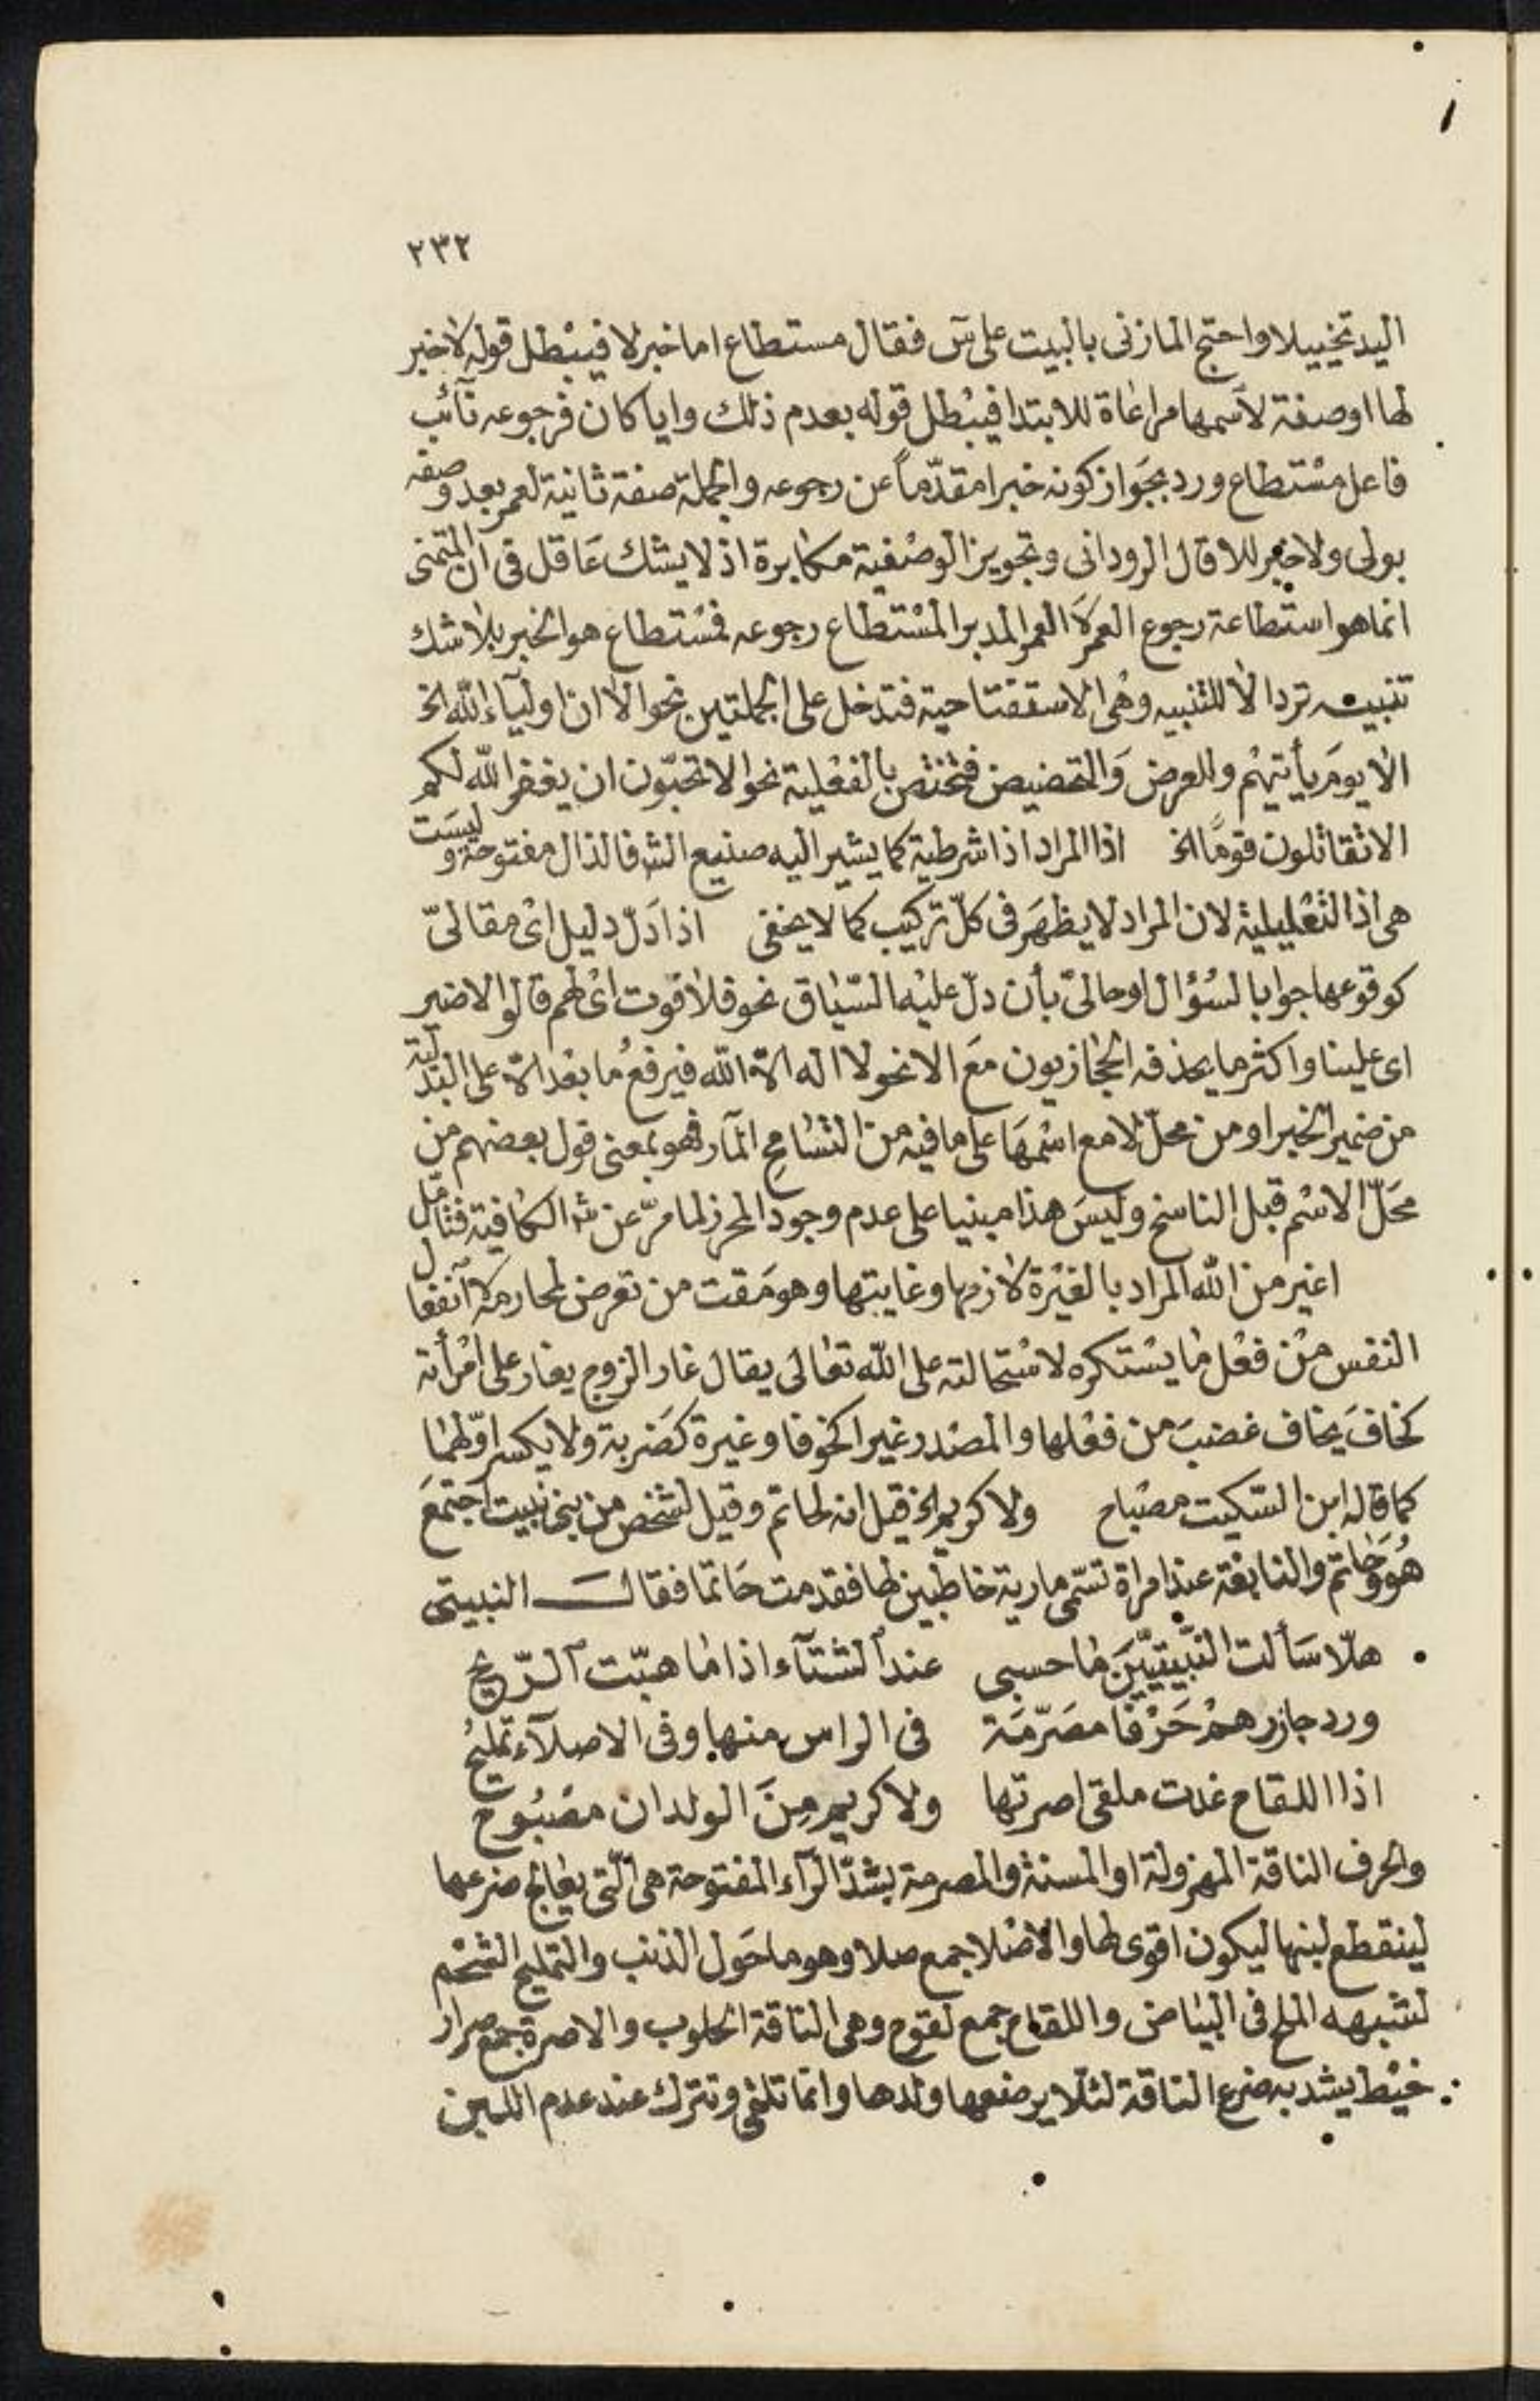 ٢٣٢
اليد تخييلا واحتج المازنى بالبيت على س فقال مستطاع اما خبر لا فيبطل قوله لا خبر
لها او صفة لاسمها مراعاة للابتدا فيبطل قوله بعدم ذلك وايا كان فرجوعه نآئب
فاعل مستطاع ورد بجواز كونه خبرا مقدّماً عن رجوعه والجملة صفة ثانية لعمر بعد وصفه
بولى ولا خبر للا قال الرودانى وتجويز الوصفية مكابرة اذ لا يشك عاقل فى ان المتمنى
انما هو استطاعة رجوع العمر لا العمر المدبر المستطاع رجوعه فمستطاع هو الخبر بلا شك
تنبيه ترد الا للتنبيه وهى الاستفتاحية فتدخل على الجملتين نحو الا ان اوليآء الله الخ
الا يوم يأتيهم وللعرض والتحضيض فتختص بالفعلية نحو الا تحبّون ان يغفر الله لكم
الا تقاتلون قومًا الخ اذا المراد اذا شرطية كما يشير اليه صنيع الش فالذال مفتوحة وليست
هى اذ التعليلية لان المراد لا يظهر فى كلّ تركيب كما لا يخفى اذا دلّ دليل اى مقالىّ
كوقوعها جوابا لسؤال او حالىّ بأن دلّ عليه السّياق نحو فلا فوت اى لهم قالوا لا ضير
اى علينا واكثر ما يحذفه الحجازيون مع الا نحو لا اله الاّ الله فيرفع ما بعد الاّ على البدلية
من ضمير الخبر او من محلّ لا مع اسمها على ما فيه من التسامح المآر فهو بمعنى قول بعضهم من
محلّ الاسم قبل الناسخ وليس هذا مبنيا على عدم وجود المحرز لما مرّ عن ش الكافية فتأمّل
اغير من الله المراد بالغيرة لازمها وغايتها وهو مقت من تعرض لمحارمه لا انفعال
النفس من فعل ما يستكره لاستحالته على الله تعالى يقال غار الزوج يغار على امرأته
كخاف يخاف غضب من فعلها والمصدر غيرا كخوفا وغيرة كضربة ولا يكسر اوّلهما
كما قاله ابن السّكيت مصباح ولا كريم الخ قيل انه لحاتم وقيل لشخص من بنى نبيت اجتمع
هو وحاتم والنابغة عند امراة تسمّى مارية خاطبين لها فقدمت حاتما فقال النبيتى
هلّا سألت النّبيتيّين ما حسبى عند الشتآء اذا ما هبّت الرّيح
ورد جازرهم حرفا مصرّمة فى الراس منها وفى الاصلآء تمليح
اذا اللقاح غدت ملقى اصرتها ولا كريم من الولدان مصبوح
والحرف الناقة المهزولة او المسنة والمصرمة بشدّ الرآء المفتوحة هى الّتى يعالج ضرعها
لينقطع لبنها ليكون اقوى لها والاصلا جمع صلا وهو ما حول الذنب والتمليح الشحم
لشبهه الملح فى البياض واللقاح جمع لقوح وهى الناقة الحلوب والاصرة جمع صرار
خيط يشد به ضرع الناقة لئلّا يرضعها ولدها وانما تلقى وتترك عند عدم اللبن